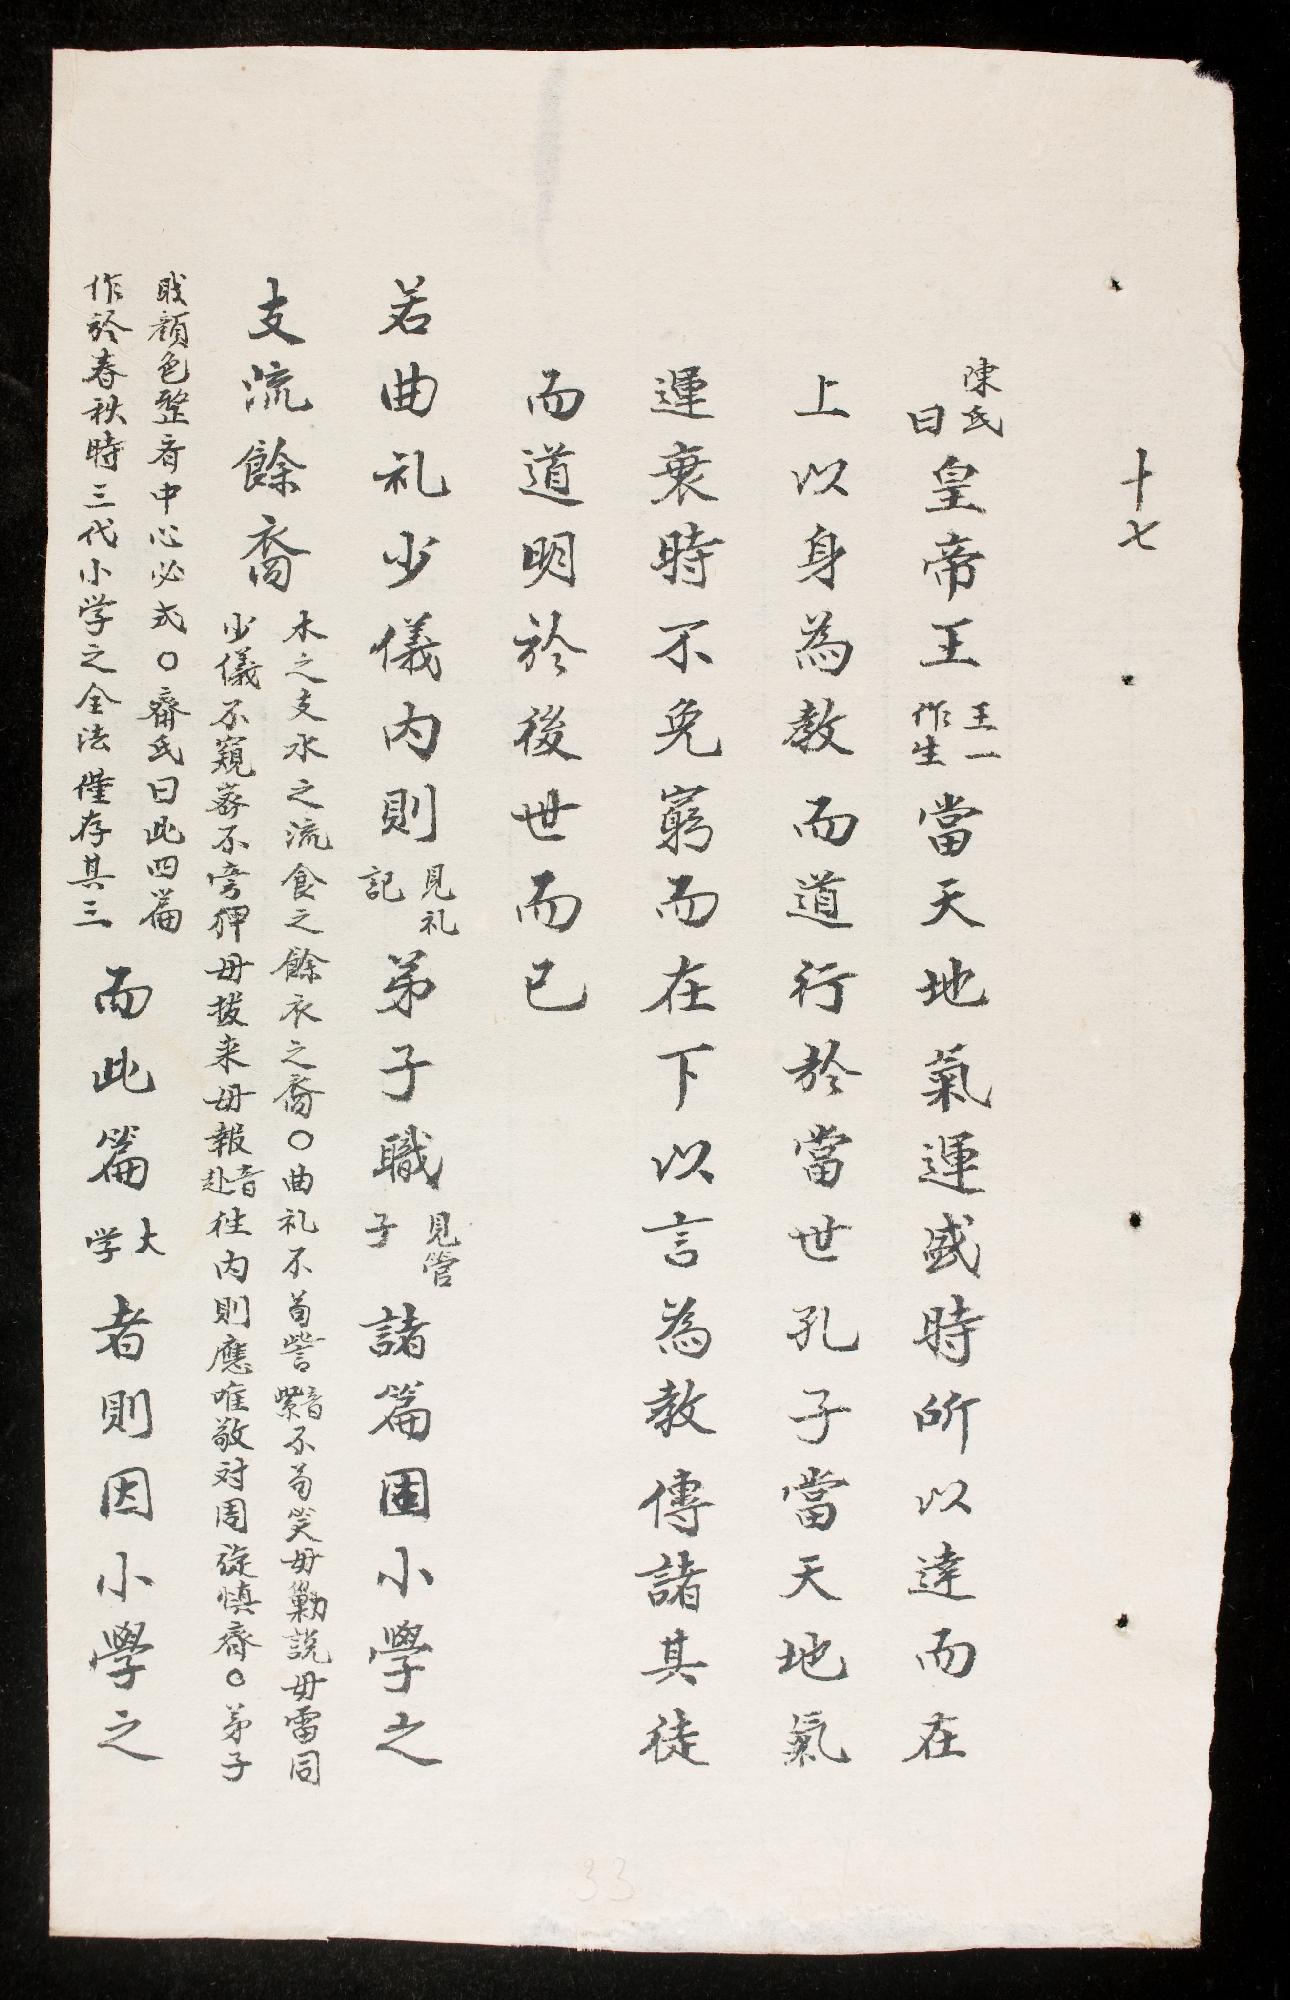 十七
陳氏曰皇帝王王一作生當天地氣運盛時所以達而在
上以身為教而道行於當世孔子當天地氣
運衰時不免窮而在下以言為教傳諸其徒
而道明於後世而已
若曲礼少儀内則見礼記弟子職見管子諸篇固小學之
支流餘裔木之支水之流食之餘衣之裔〇曲礼不苟訾音紫不苟笑毋勦説毋雷同
少儀不窺密不旁狎毋拔来毋報音赴往内則應唯敬対周旋慎齊〇弟子
職顔色整齊中心必式〇齊氏曰此四篇
作於春秋時三代小学之全法僅存其三而此篇大学者則因小學之
33